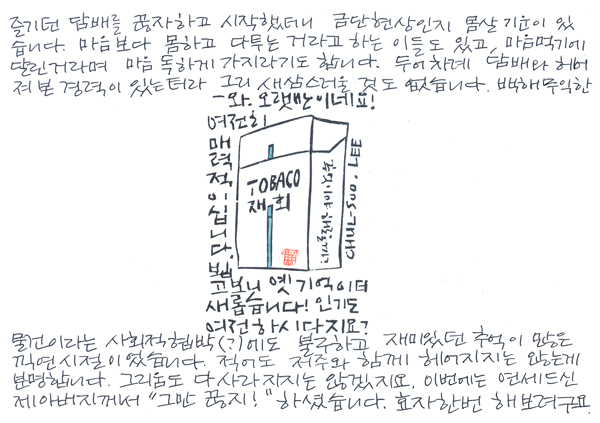 즐기던 담배를 끊자하고 시작했더니 금단현상인지 몸살 기운이 있
습니다. 마음보다 몸하고 다투는 거라고 하는 이들도 있고, 마음먹기에
달린거라며 마음 독하게 가지라기도 합니다. 두어차례 담배와 헤어
져 본 경력이 있는터라 그리 새삼스러울 것도 없습니다. 백해무익한
-와. 오랫만이네요!
여전히
매력적이십니다.
TOBACO
재회
CHUL-SOO. LEE
뵙
고보니 옛 기억이 더
새롭습니다! 인기도
여전하시다지요?
물건이라는 사회적협박(?)에도 불구하고 재미있던 추억이 많은
끽연시절이었습니다. 적어도 저주와 함께 헤어지지는 않는게
분명합니다. 그리움도 다 사라지지는 않겠지요. 이번에는 연세드신
제아버지께서 "그만 끊지!" 하셨습니다. 효자한번 해보려구요.